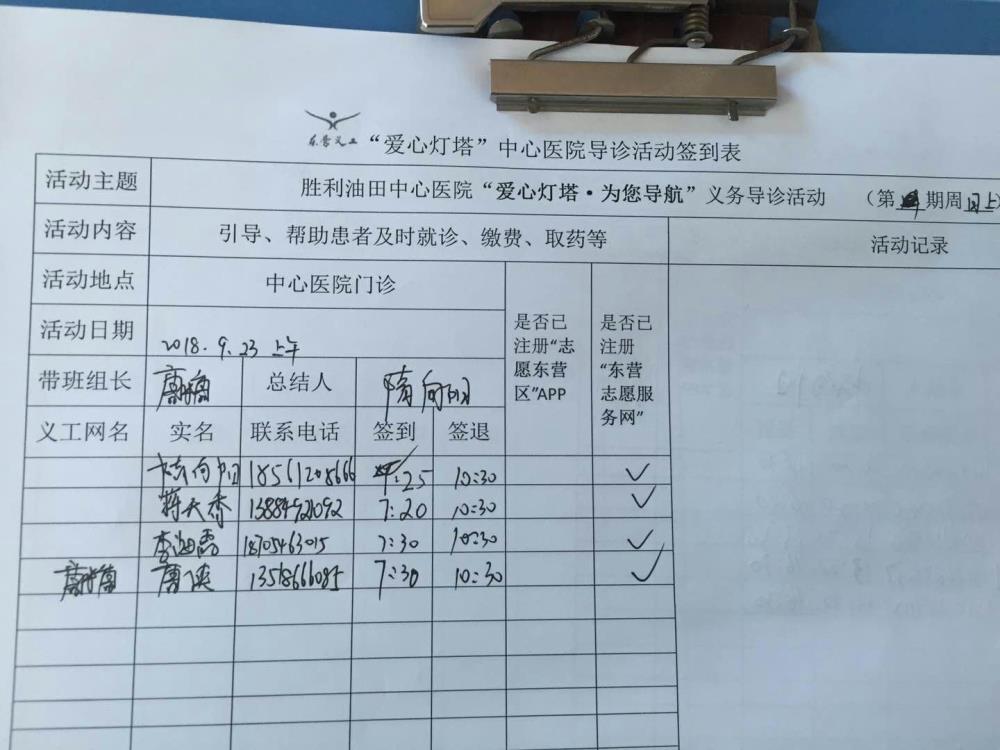 东营义工
“爱心灯塔”中心医院导诊活动签到表
活动主题 胜利油田中心医院“爱心灯塔·为您导航”义务导诊活动 (第 期周日上
活动内容 引导、帮助患者及时就诊、缴费、取药等 活动记录
活动地点 中心医院门诊
活动日期 2018.9.23 上午
是否已注册“志愿东营区”APP
是否已注册“东营志愿服务网”
带班组长 总结人 隋向阳
义工网名 实名 联系电话 签到 签退
向阳 18561208666 7:25 10:30 ✓
蒋大香 13884921092 7:20 10:30 ✓
李海霞 18705463015 7:30 10:30 ✓
13518666085 7:30 10:30 ✓